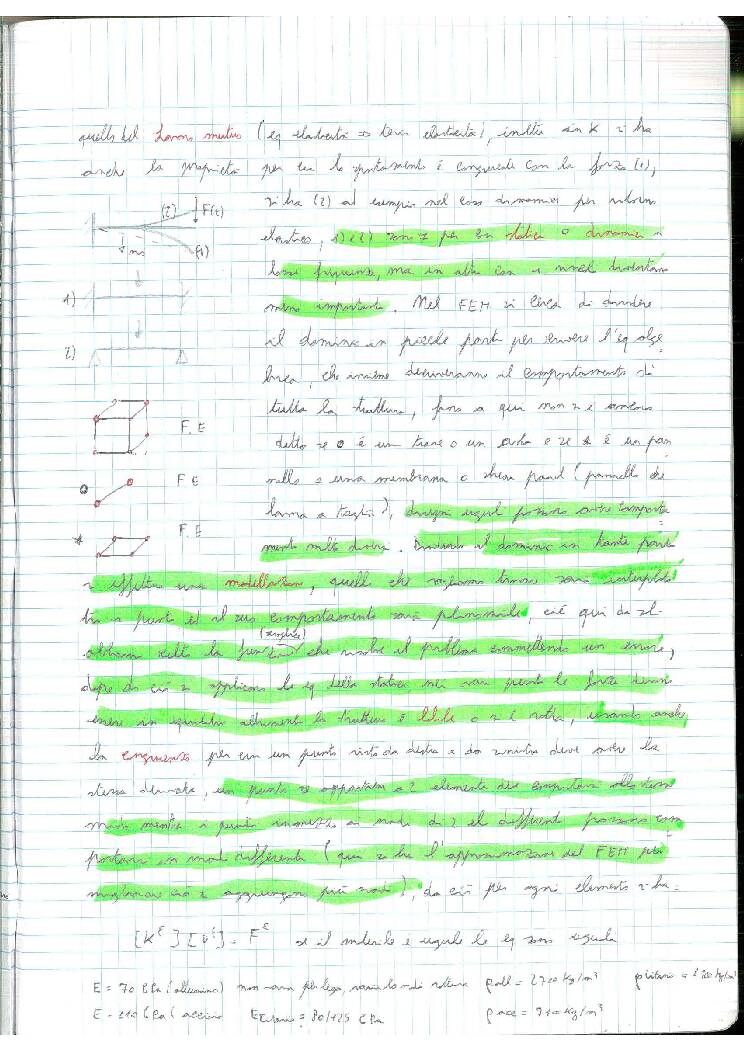 quella del lavoro mutuo (eq elasticità => teoria elasticità), inoltre con K si ha
anche la proprietà per cui lo spostamento è congruente con la forza (1),
(2) F(t) si ha (2) ad esempio nel caso dinamico per ritorno
ms (1) elastico, 1) e 2) sono = per en statica o dinamica a
basse frequenze, ma in alta con i nodi diventano
1) meno importante. Nel FEM si cerca di dividere
il dominio in piccole parti per scrivere l'eq alge
2) brica, che insieme descriveranno il comportamento di
tutta la struttura, fino a qui non si è ancora
F.E detto se o è un trave o un asta e se * è un pan
o F E nello o una membrana o shear panel (pannello che
lavora a taglio), disegni uguali possono avere comporta
* F.E menti molto diversi. Dividendo il dominio in tante parti
si effettua una modellazione, quelli che vogliamo trovare sarà interpolato
tra i punti ed il suo comportamento sarà plurinodale, cioè qui da
(semplice)
abbiamo scelto la funzione che risolve il problema commettendo un errore,
dopo di ciò si applicano le eq della statica, nei vari punti le forze devono
essere in equilibrio altrimenti la struttura è labile o si è rotta, usando anche
la congruenza per cui un punto visto da destra e da sinistra deve avere la
stessa derivata, un punto se appartiene a 2 elementi deve comportarsi allo stesso
modo mentre i punti connessi ai nodi di 2 el differenti possono com
portarsi in modi differenti (qui si ha l'approssimazione del FEM per
migliorare ciò si aggiungono più nodi), da ciò per ogni elemento si ha:
[K^E] [U^E] = F^E se il materiale è uguale le eq sono uguali
E = 70 GPa (alluminio) non varia per lega, varia lo di rottura ρall = 2700 kg/m³
E = 210 GPa (acciaio) E = 80/125 GPa ρacc = 7100 kg/m³